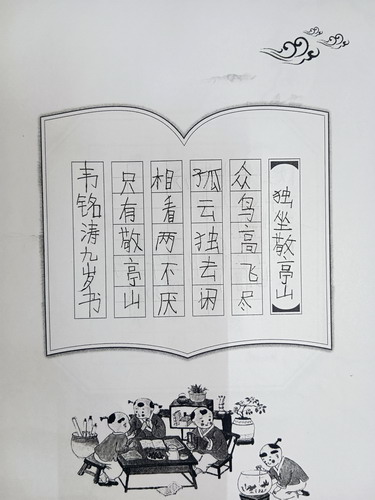 独坐敬亭山
众鸟高飞尽
孤云独去闲
相看两不厌
只有敬亭山
韦铭涛九岁书